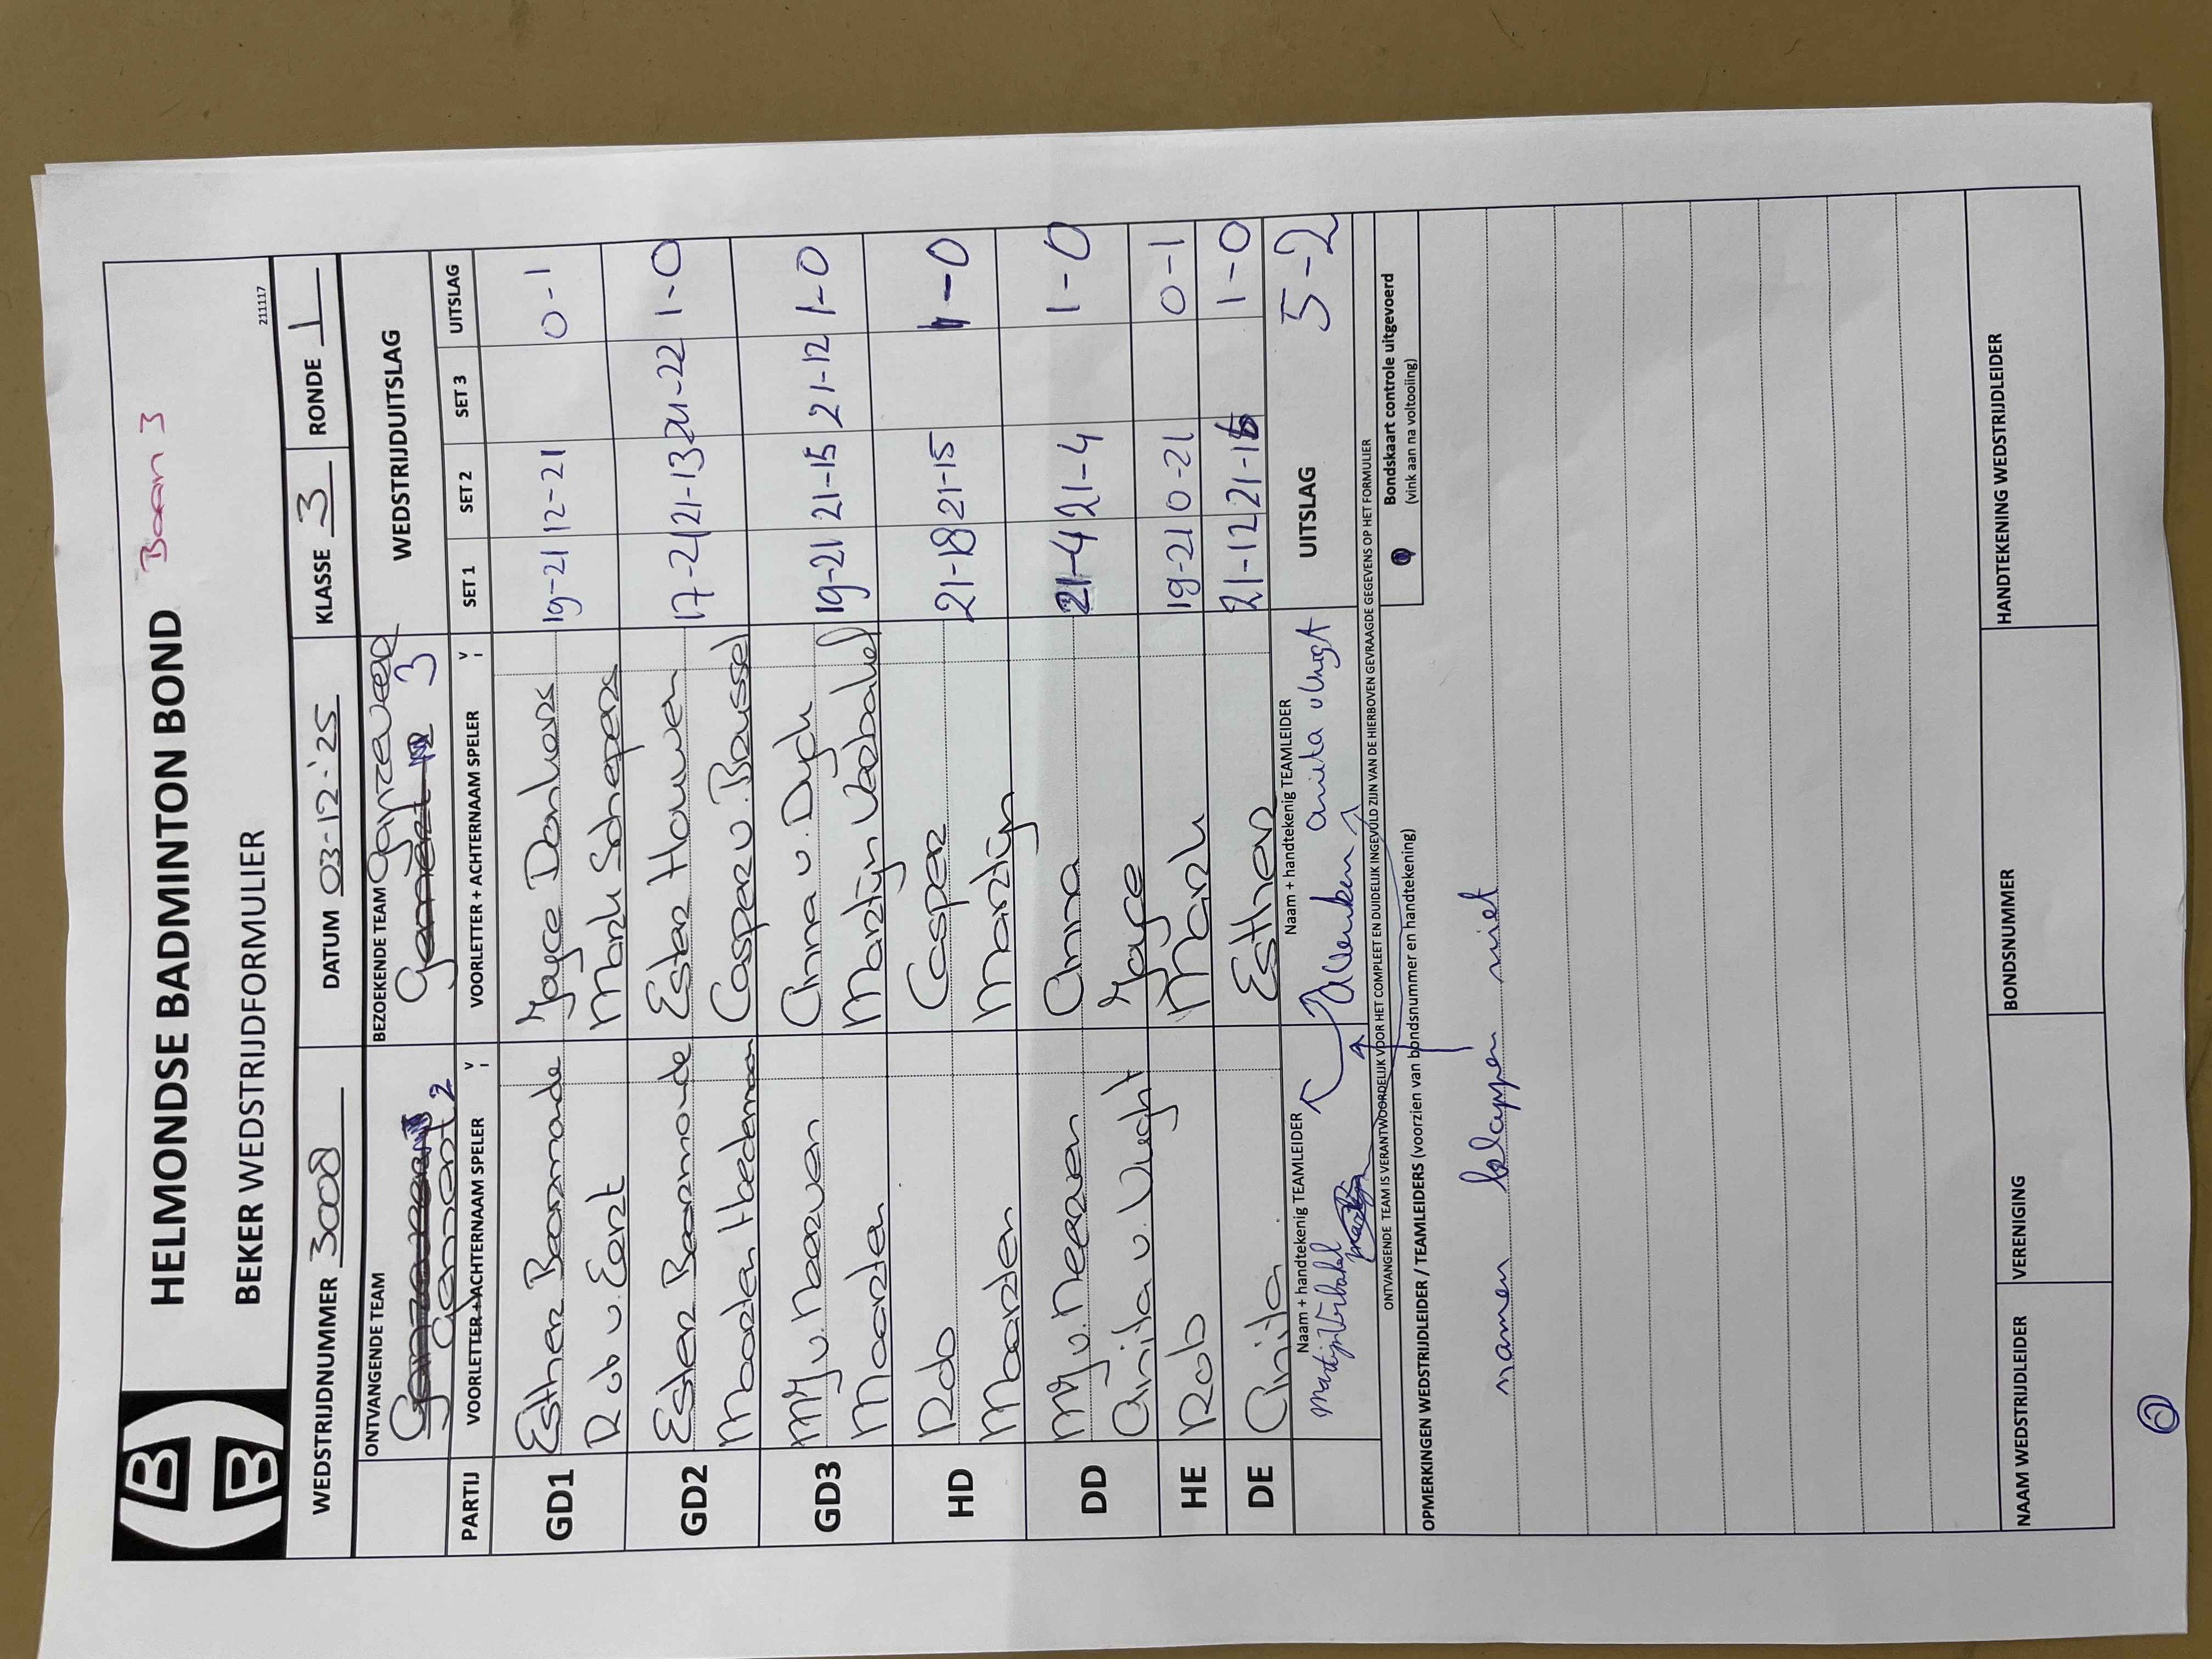 HELMONDSE BADMINTON BOND Baan 3
BEKER WEDSTRIJDFORMULIER 211117
WEDSTRIJDNUMMER 3008 DATUM 03-12-'25 KLASSE 3 RONDE 1
ONTVANGENDE TEAM BEZOEKENDE TEAM Ganzeveer WEDSTRIJDUITSLAG
Gemert 2 Gemert 3
PARTIJ VOORLETTER + ACHTERNAAM SPELER V I VOORLETTER + ACHTERNAAM SPELER V I SET 1 SET 2 SET 3 UITSLAG
GD1 Esther Baarmonde Joyce Donkers 19-21 12-21 0-1
Rob v. Eert Mark Schepers
GD2 Esther Baarmonde Ester Houwen 17-21 21-13 24-22 1-0
Maarten Hoedemaan Casper v. Brussel
GD3 MJ v. Neerven Anna v. Dyck 19-21 21-15 21-12 1-0
Maarten Martijn Verbakel
HD Rob Casper 21-18 21-15 1-0
Maarten Martijn
DD MJ v. Neerven Anna 21-4 21-4 1-0
Anita v. Vught Joyce
HE Rob Mark 19-21 10-21 0-1
DE Anita Esther 21-12 21-16 1-0
Naam + handtekenig TEAMLEIDER Naam + handtekenig TEAMLEIDER UITSLAG 5-2
Martijn Verbakel anita vlugt
ONTVANGENDE TEAM IS VERANTWOORDELIJK VOOR HET COMPLEET EN DUIDELIJK INGEVULD ZIJN VAN DE HIERBOVEN GEVRAAGDE GEGEVENS OP HET FORMULIER
Bondskaart controle uitgevoerd
(vink aan na voltooiing)
OPMERKINGEN WEDSTRIJDLEIDER / TEAMLEIDERS (voorzien van bondsnummer en handtekening)
namen kloppen niet
NAAM WEDSTRIJDLEIDER VERENIGING BONDSNUMMER HANDTEKENING WEDSTRIJDLEIDER